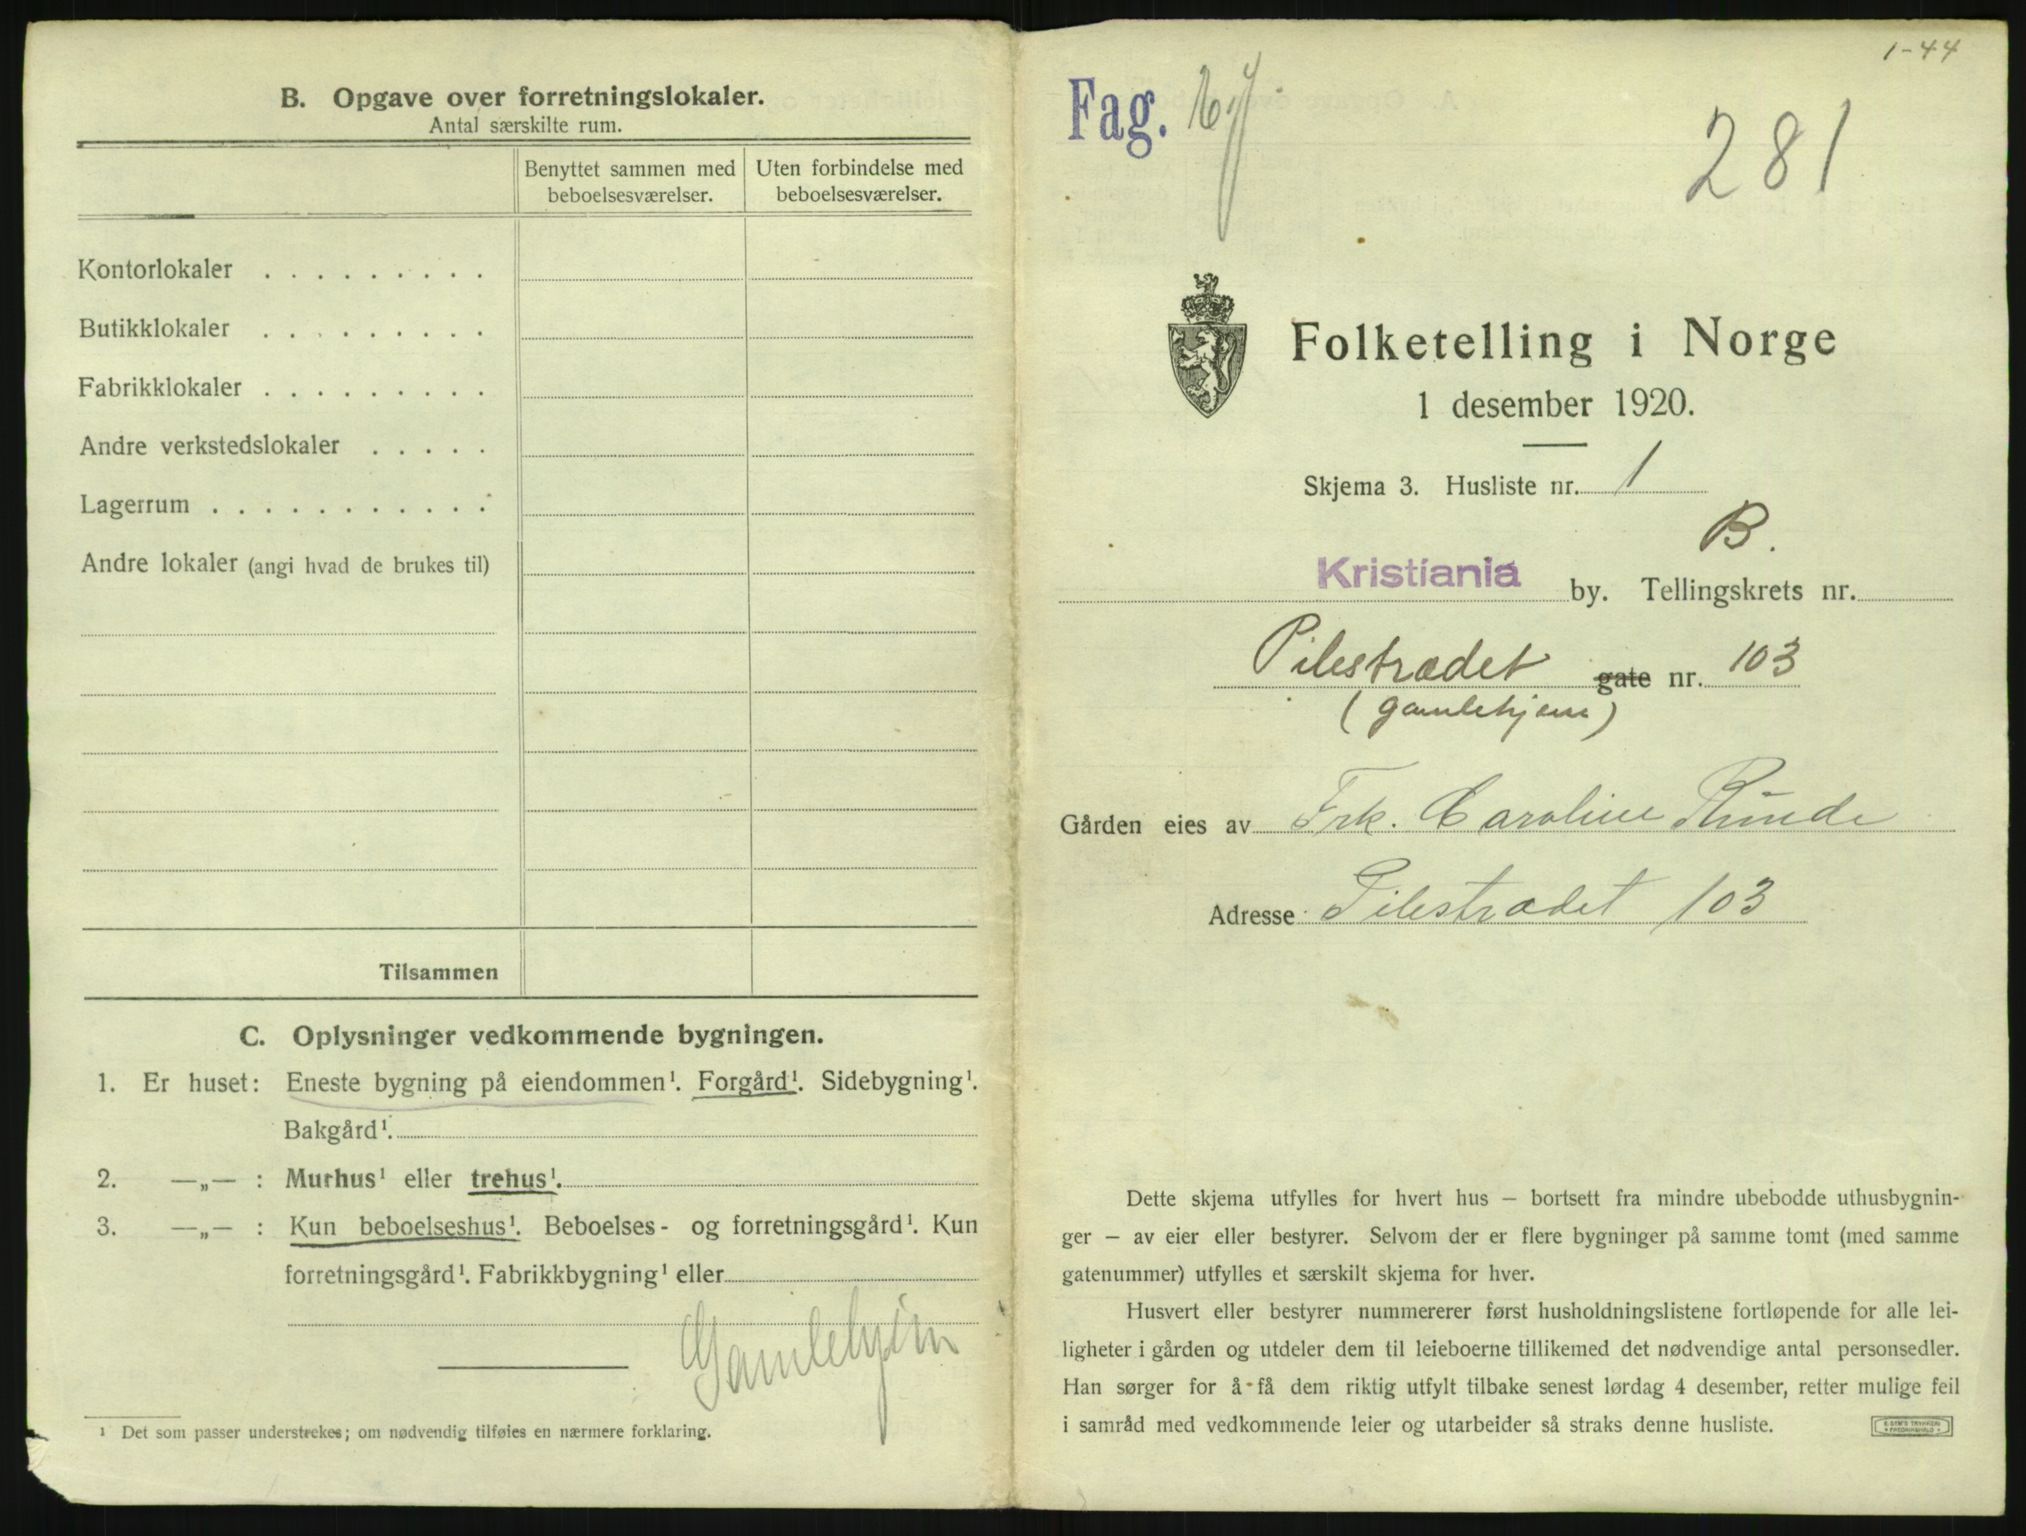 B. Opgave over forretningslokaler.
Antal særskilte rum.
Benyttet sammen med beboelsesværelser.
Uten forbindelse med beboelsesværelser.
Kontorlokaler . . . . . . . . .
Butikklokaler . . . . . . . . .
Fabrikklokaler . . . . . . . . .
Andre verkstedslokaler . . . . .
Lagerrum . . . . . . . . . . .
Andre lokaler (angi hvad de brukes til)
Tilsammen
C. Oplysninger vedkommende bygningen.
1. Er huset: Eneste bygning på eiendommen¹. Forgård¹. Sidebygning¹.
Bakgård¹.
2. —„— : Murhus¹ eller trehus¹.
3. —„— : Kun beboelseshus¹. Beboelses- og forretningsgård¹. Kun
forretningsgård¹. Fabrikkbygning¹ eller
Gamlehjem
¹ Det som passer understrekes; om nødvendig tilføies en nærmere forklaring.
1-44
Fag.
281
Folketelling i Norge
1 desember 1920.
Skjema 3. Husliste nr. 1
B.
Kristiania by. Tellingskrets nr.
Pilestrædet gate nr. 103
(gamlehjem)
Gården eies av Frk. Caroline Runde
Adresse Pilestrædet 103
Dette skjema utfylles for hvert hus — bortsett fra mindre ubebodde uthusbygnin-
ger — av eier eller bestyrer. Selvom der er flere bygninger på samme tomt (med samme
gatenummer) utfylles et særskilt skjema for hver.
Husvert eller bestyrer nummererer først husholdningslistene fortløpende for alle lei-
ligheter i gården og utdeler dem til leieboerne tillikemed det nødvendige antal personsedler.
Han sørger for å få dem riktig utfylt tilbake senest lørdag 4 desember, retter mulige feil
i samråd med vedkommende leier og utarbeider så straks denne husliste.